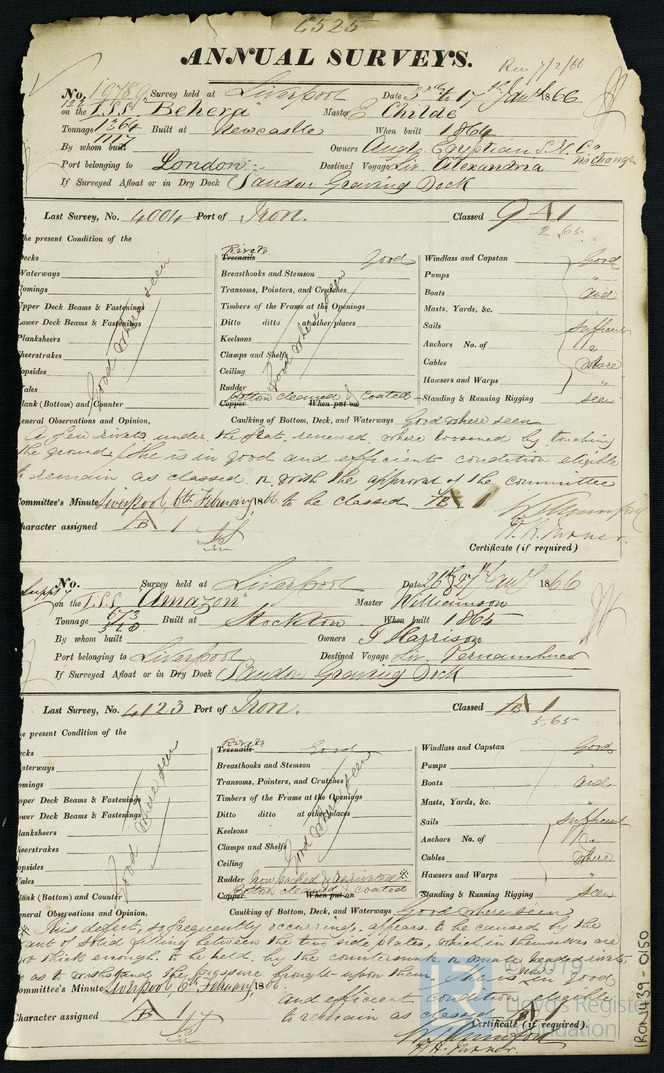 6525
ANNUAL SURVEYS.
Rec 7/2/66
No. 19789 Survey held at Liverpool Date 3rd to 17th Jany 1866
122 on the I.S.S. "Behera" Master E Childe
Tonnage 1364 Built at Newcastle When built 1864
1117
By whom built Owners Anglo Egyptian S.N. Co
no change
Port belonging to London Destined Voyage Liv. Alexandria
If Surveyed Afloat or in Dry Dock Sandon Graving Dock
Last Survey, No. 4004 Port of Iron. Classed 9 A 1
2.65
The present Condition of the
Decks
Waterways
Comings
Upper Deck Beams & Fastenings
Lower Deck Beams & Fastenings
Planksheers
Sheerstrakes
Topsides
Wales
Plank (Bottom) and Counter
Good where seen
Rivets
Treenails Good
Breasthooks and Stemson
Transoms, Pointers, and Crutches
Timbers of the Frame at the Openings
Ditto ditto at other places
Keelsons
Clamps and Shelfs
Ceiling
Rudder
Good where seen
Bottom cleaned & coated
Copper When put on
Windlass and Capstan Good
Pumps "
Boats and
Masts, Yards, &c. "
Sails sufficient
Anchors No. of
Cables where
Hawsers and Warps "
Standing & Running Rigging seen
General Observations and Opinion, Caulking of Bottom, Deck, and Waterways Good where seen
A few rivets under the flat renewed where loosened by touching
the ground, she is in good and efficient condition eligible
to remain as classed or with the approval of the committee
Committee's Minute Liverpool, 6th February, 1866 to be classed B A 1
Character assigned B A 1
H. R. Turner.
Certificate (if required)
No. Survey held at Liverpool Date 26 & 27th Jany 1866
Supp on the I.S.S. "Amazon" Master Williamson
Tonnage 573 Built at Stockton When built 1865
By whom built Owners J Harrison
Port belonging to Liverpool Destined Voyage Liv. Pernambuco
If Surveyed Afloat or in Dry Dock Sandon Graving Dock
Last Survey, No. 4123 Port of Iron. Classed B A 1
5.65
The present Condition of the
Decks
Waterways
Comings
Upper Deck Beams & Fastenings
Lower Deck Beams & Fastenings
Planksheers
Sheerstrakes
Topsides
Wales
Plank (Bottom) and Counter
Good where seen
Rivets
Treenails Good
Breasthooks and Stemson
Transoms, Pointers, and Crutches
Timbers of the Frame at the Openings
Ditto ditto at other places
Keelsons
Clamps and Shelfs
Ceiling
Good where seen
Rudder Iron Caulked & reriveted *
Bottom cleaned & coated
Copper When put on
Windlass and Capstan Good
Pumps "
Boats and
Masts, Yards, &c. "
Sails sufficient
Anchors No. of
Cables where
Hawsers and Warps "
Standing & Running Rigging seen
General Observations and Opinion, Caulking of Bottom, Deck, and Waterways Good where seen
* This defect, so frequently occurring, appears to be caused by the
want of solid filling between the two side plates, which in themselves are
not thick enough to be held by the countersunk or headed rivets
so as to withstand the pressure brought upon them. She is now in good
Committee's Minute Liverpool 6th February, 1866
and efficient condition eligible
Character assigned B A 1 to remain as classed B A 1
Certificate (if required).
H. R. Turner.
Lloyd's Register
Foundation
IRON439-0150